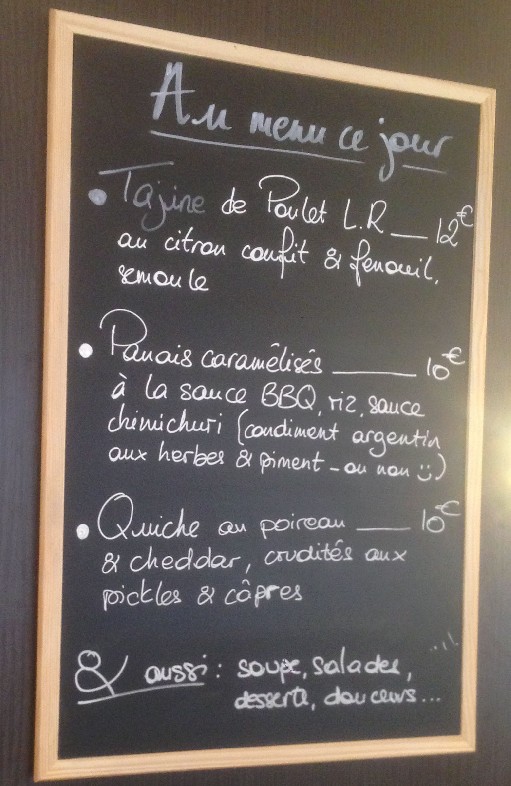 Au menu ce jour
• Tajine de Poulet L.R __ 12€
au citron confit & fenouil,
semoule
• Panais caramélisés ____ 10€
à la sauce BBQ, riz, sauce
chimichuri (condiment argentin
aux herbes & piment - ou non :))
• Quiche au poireau ___ 10€
& cheddar, crudités aux
pickles & câpres
& aussi : soupe, salades,
desserts, douceurs...